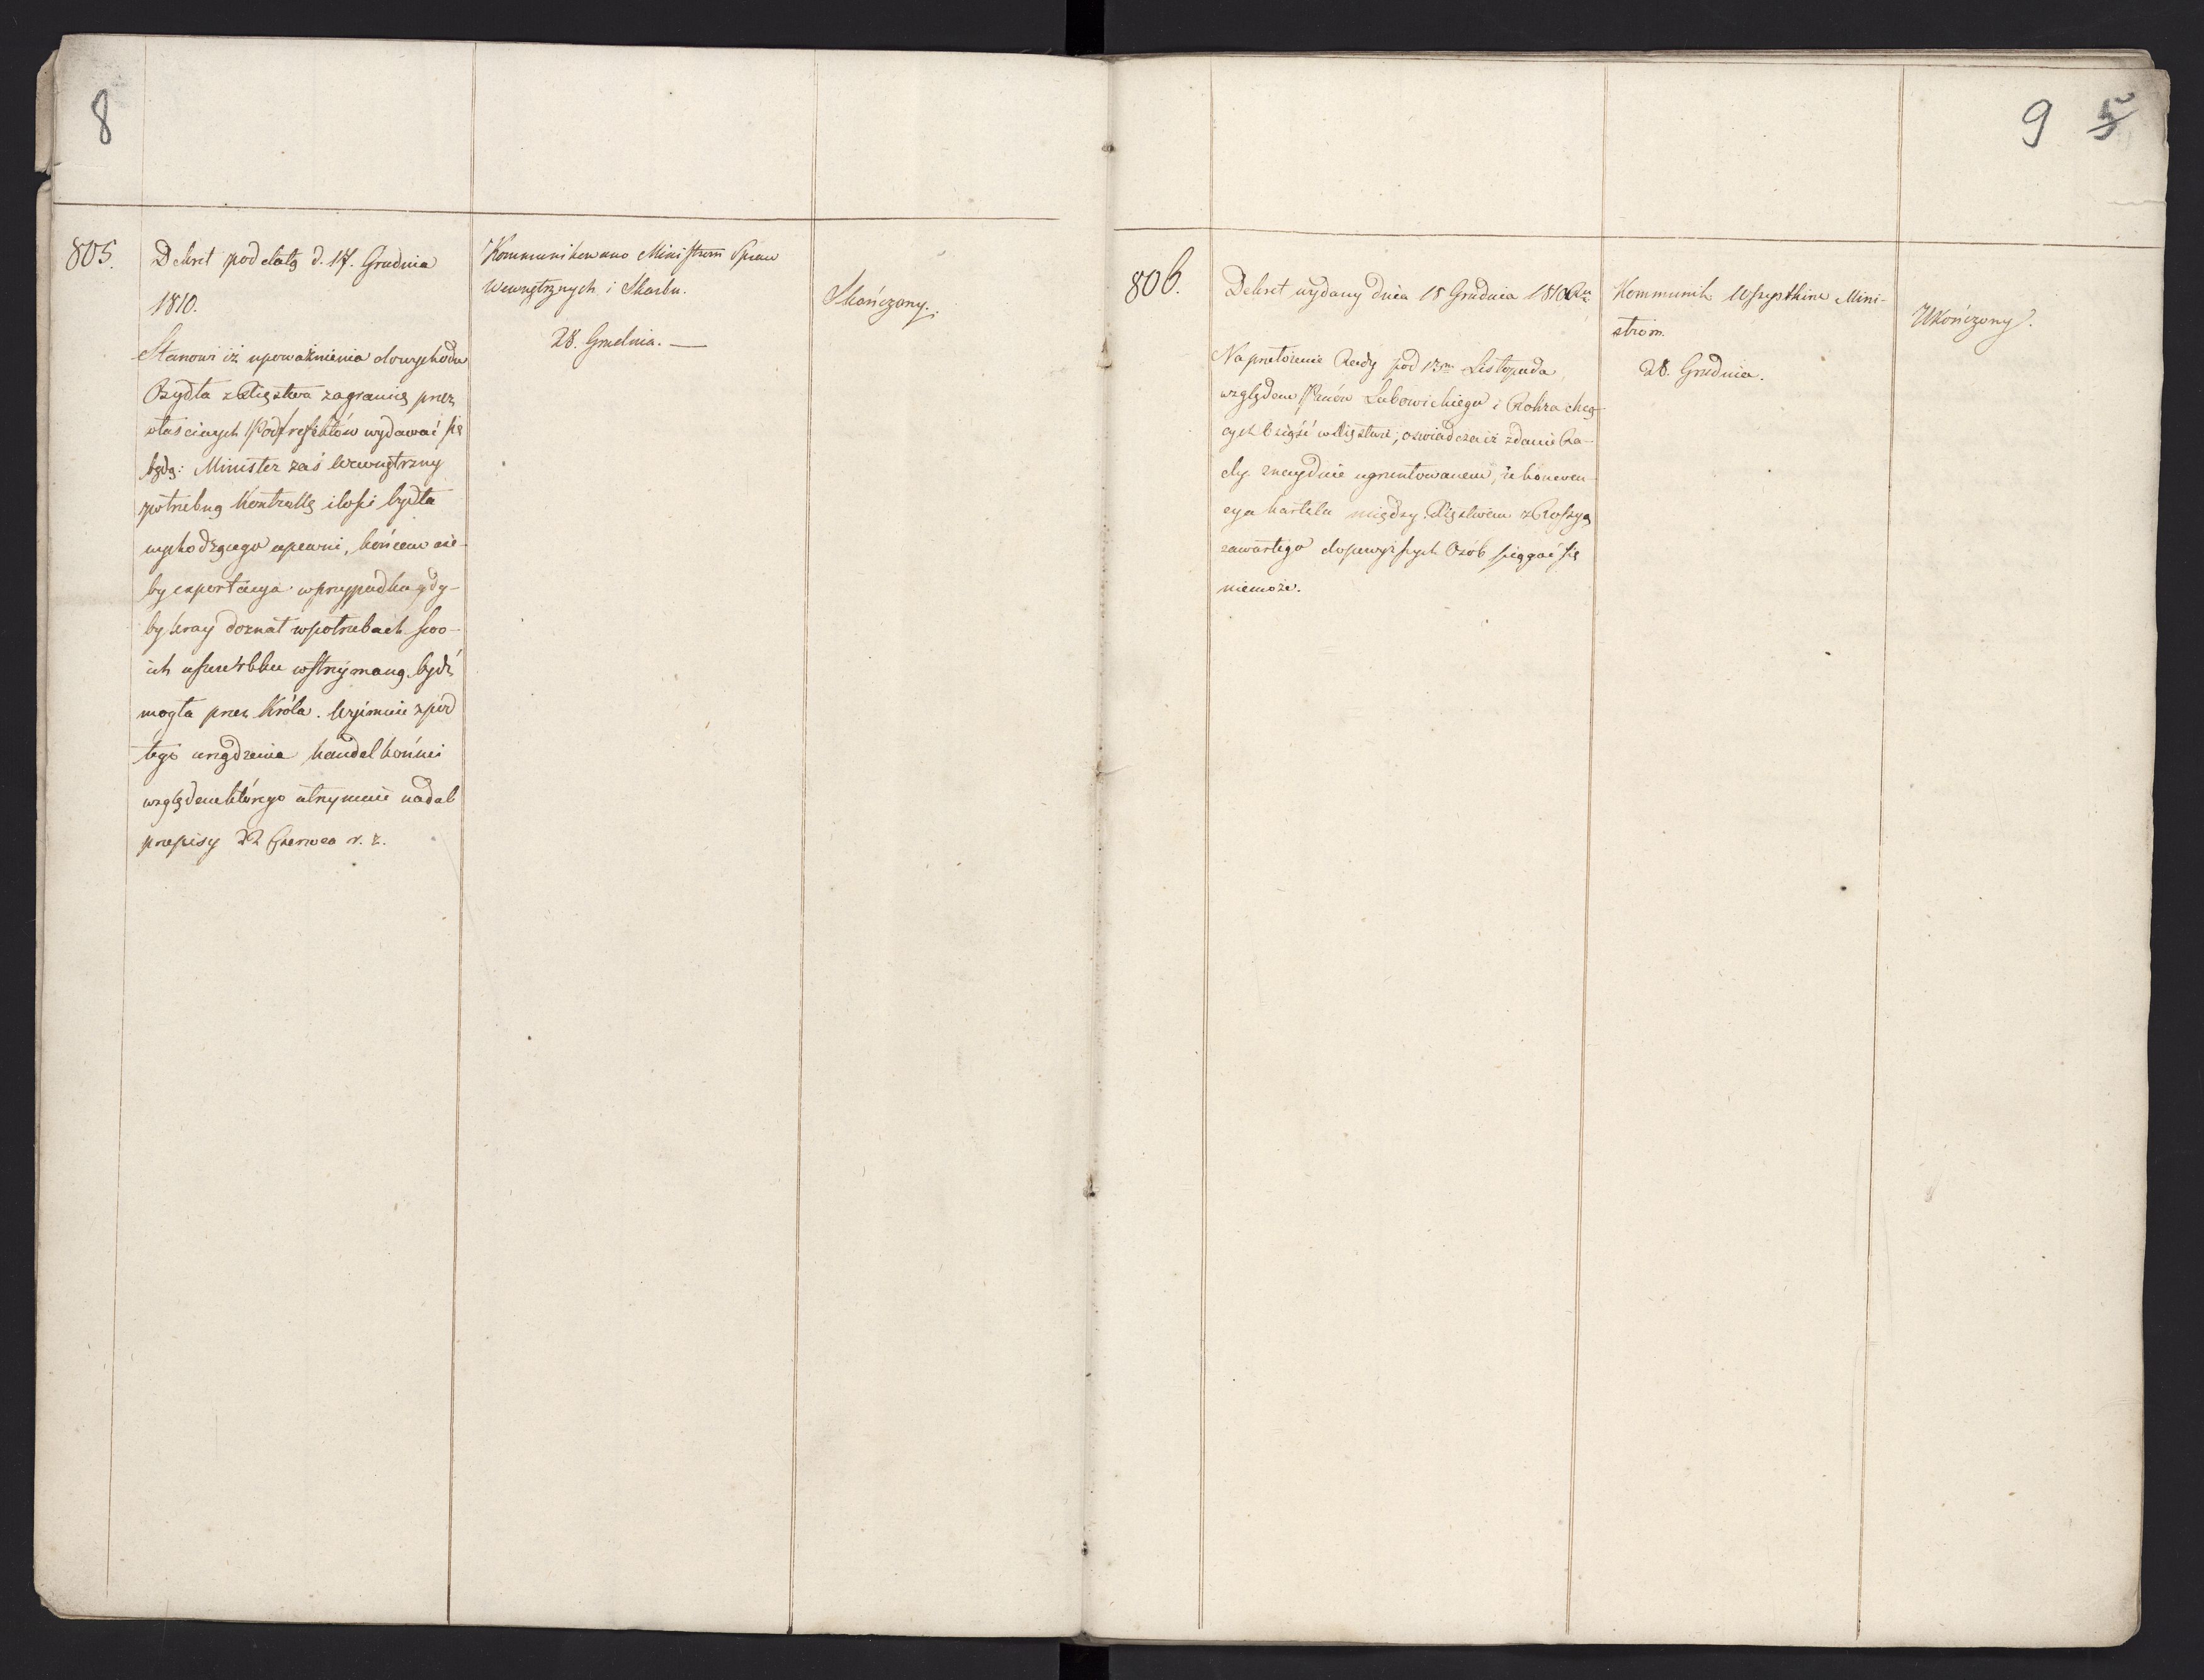 8
805.
Dekret pod datą d. 17. Grudnia
1810.
Stanowi iż upoważnienia do wychodu
Bydła z Xięstwa zagranicę przez
właściwych Podprefektów wydawać się
będą: Minister zaś Wewnętrzny
potrzebną Kontrollę ilości bydła
wychodzącego upewni, końcem aże-
by exportacya w przypadku gdy-
by kray doznał w potrzebach swo-
ich uszczerbku wstrzymaną bydź
mogła przez Króla. Wyimuie zpod
tego urządzenia handel końmi
względem którego utrzymuie nadal
przepisy 22 Czerwca r. z.
Kommunikowano Ministrom Spraw
Wewnętrznych i Skarbu.
28. Grudnia. —
Skończony.
9 5
806.
Dekret wydany dnia 18 Grudnia 1810 Ru
Na przełożenie Rady pod 13m Listopada
względem Panów Lubowickiego i Rohra chcą-
cych osiąść w Xięstwie; oświadcza iż zdanie Ra-
dy znayduie ugruntowanem, że konwen-
cya kartelu między Xięstwem z Rossyą
zawartego do powyższych Osób sięgać się
niemoże.
Kommunik Wszystkim Mini-
strom.
28. Grudnia.
Ukończony.